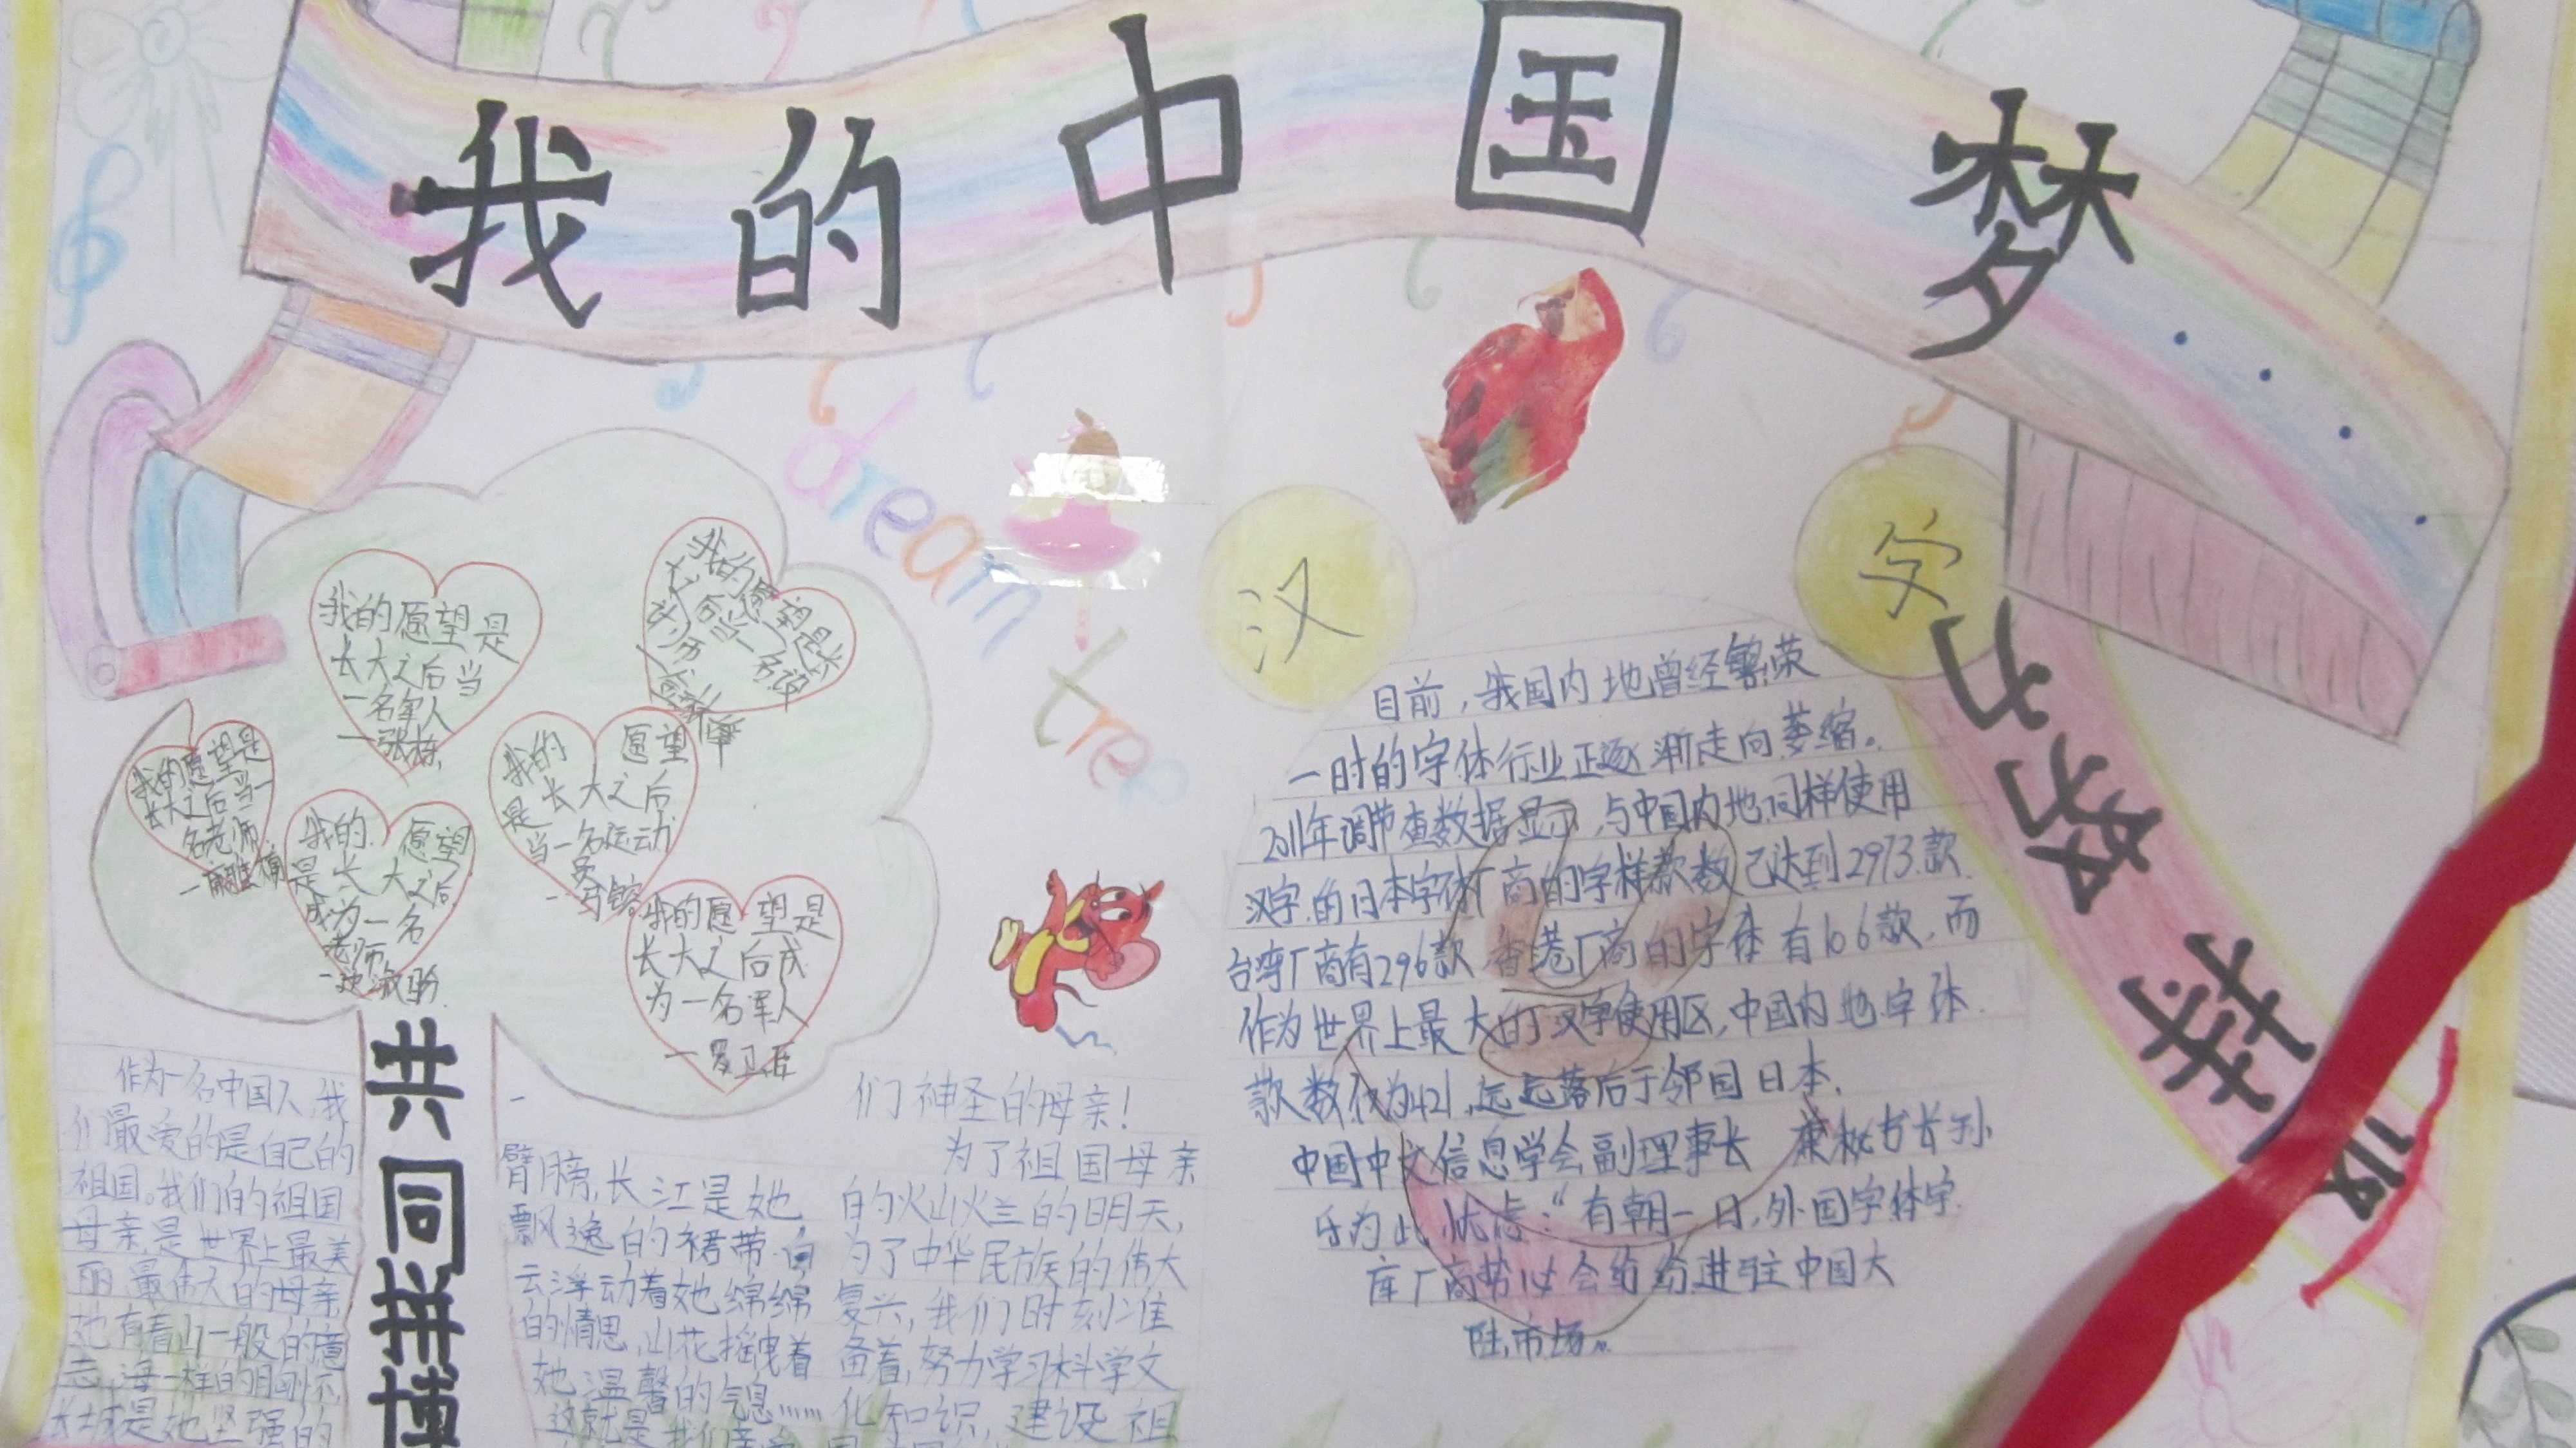 我的中国梦
dream
tree
我的愿望是
长大之后当
一名军人
一张栋
我的愿望是长
大之后当一名
我的愿望是
长大之后当一
名老师
我的愿望
是长大之后
成为一名
老师
我的愿望
是长大之后
当一名运动
员
我的愿望是
长大之后成
为一名军人
一罗卫臣
共同拼搏
作为一名中国人,我
们最爱的是自己的
祖国。我们的祖国
母亲是世界上最美
丽最伟大的母亲
她有着山一般的意
志,海一样的胸怀,
长城是她坚强的
臂膀,长江是她
飘逸的裙带,白
云浮动着她绵绵
的情思,山花摇曳着
她温馨的气息……
这就是我们
们神圣的母亲!
为了祖国母亲
的火山火兰的明天,
为了中华民族的伟大
复兴,我们时刻准
备着,努力学习科学文
化和识,建设祖
汉字
目前,我国内地曾经繁荣
一时的字体行业正逐渐走向萎缩。
2011年调节查数据显示,与中国内地同样使用
汉字的日本字体厂商的字样款数已达到2973款
台湾厂商有296款 香港厂商的字体有106款,而
作为世界上最大的汉字使用区,中国内地字体
款数仅为421,远远落后于邻国日本.
中国中文信息学会副理事长 兼秘书长孙
乐为此忧虑:“有朝一日,外国字体字
库厂商势必会纷纷进驻中国大
陆市场。
力
努
拼